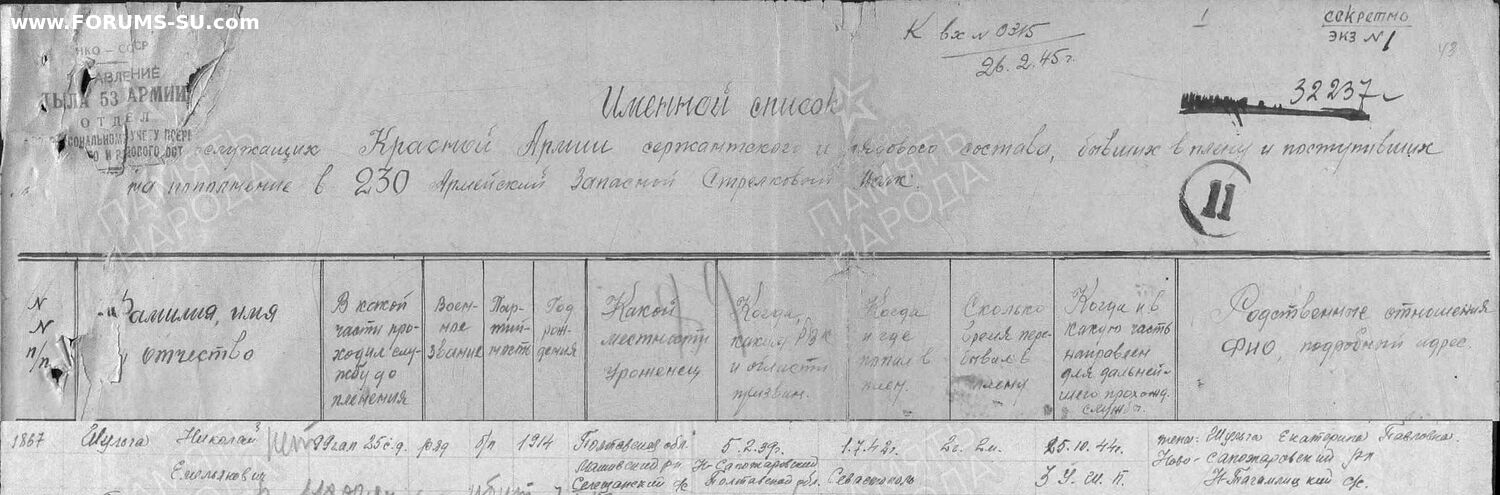 www.FORUMS-SU.com
НКО – СССР
ТЫЛА 53 АРМИИ
ОТДЕЛ
К вх № 0315
26.2.45 г.
1
секретно
экз № 1
43
32237
Именной список
служащих Красной Армии сержантского и рядового состава, бывших в плену и поступивших
на пополнение в 230 Армейский Запасной Стрелковый Полк.
11
ПАМЯТЬ НАРОДА
N N п/п
Фамилия, имя и отчество
В какой части проходил службу до пленения
Воен-ное звание
Пар-тий-ность
Год рож-дения
Какой местности уроженец
Когда, каким РВК и области призван.
Когда и где попал в плен.
Сколько время пере-бывал в плену
Когда и в какую часть направлен для дальней-шего прохожд. службы.
Родственные отношения ФИО, подробный адрес.
1867
Шульга Николай Емельянович
99 гап 25 с.д.
ряд
б/п
1914
Полтавская обл
5.2.39г.
Н-Санжаровский
Полтавской обл.
1.7.42г.
Севастополь
2г. 2м.
25.10.44г.
3 У. ш. п.
жена: Шульга Екатерина Павловна
Ново-